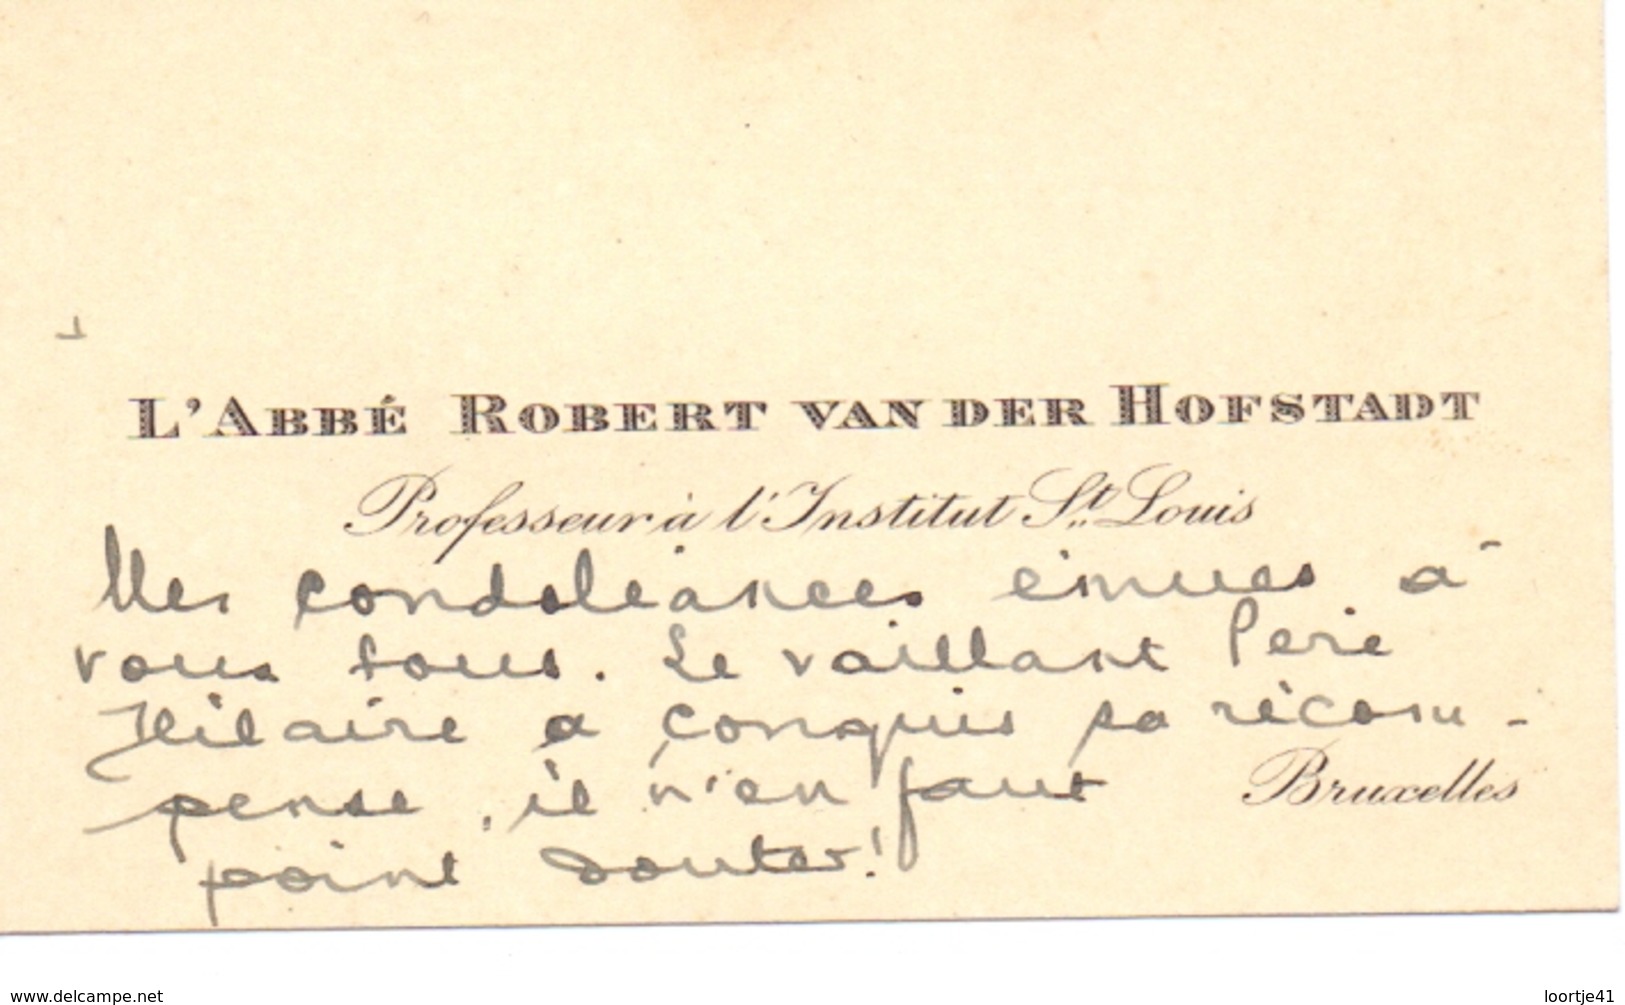 L'ABBÉ ROBERT VAN DER HOFSTADT
Professeur à l'Institut St. Louis
Mes condoléances émues à
vous tous. Le vaillant Père
Hilaire a conquis sa récom-
pense, il n'en faut
Bruxelles
point douter!
www.delcampe.net
loortje41